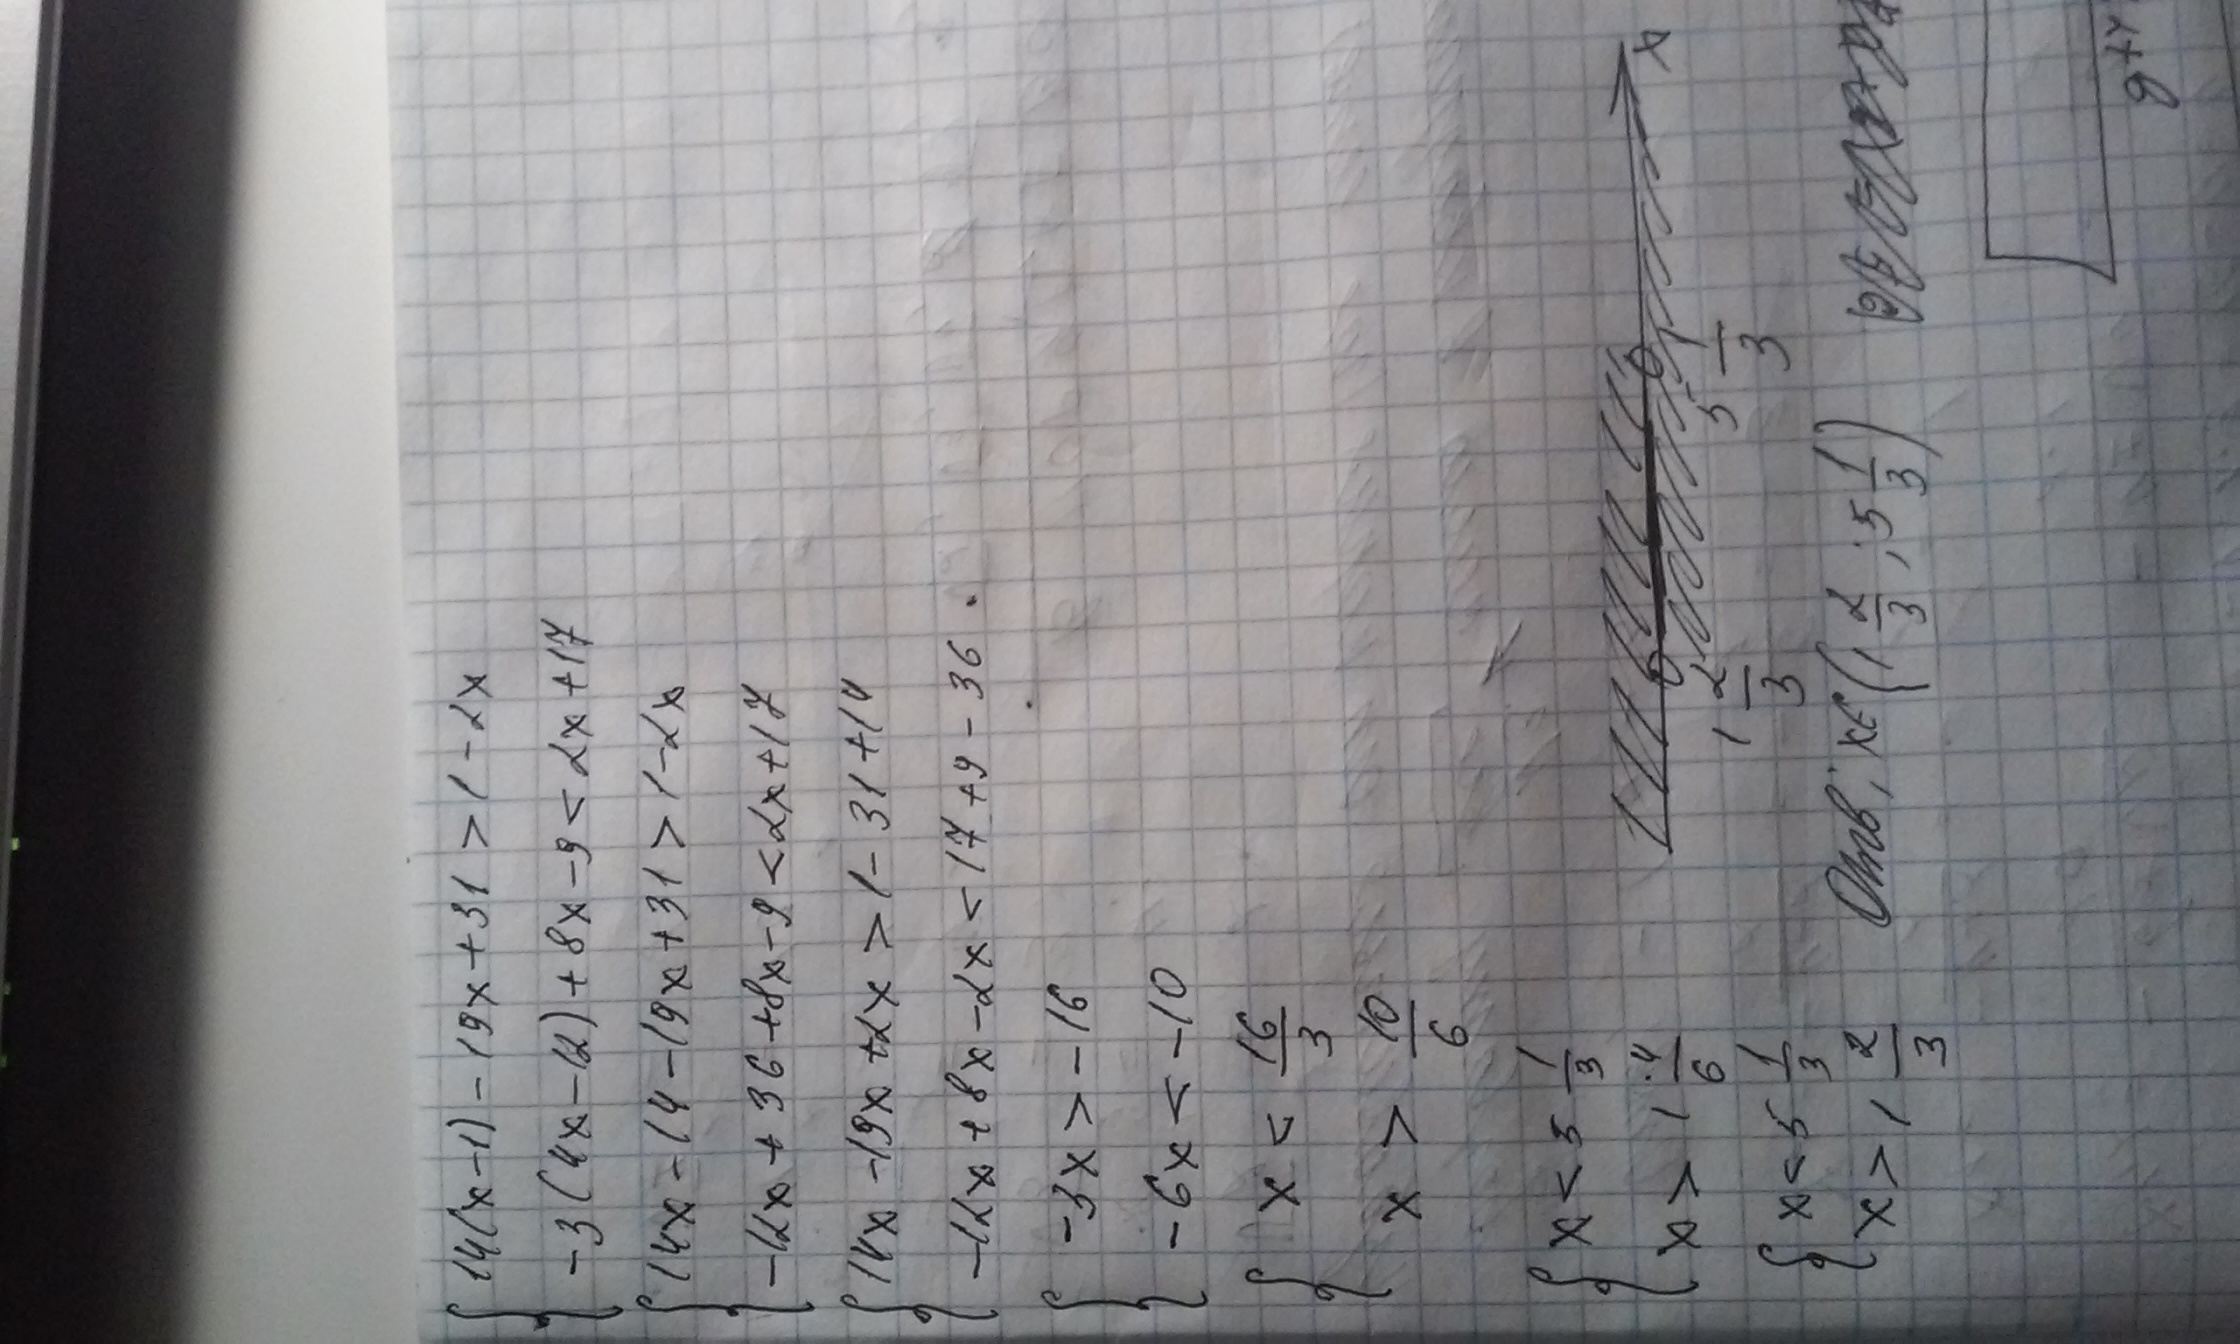 { 14(x-1)-19x+31>1-2x
-3(4x-12)+8x-9<2x+17
{ 14x-14-19x+31>1-2x
-12x+36+8x-9<2x+17
{ 14x-19x+2x>1-31+14
-12x+8x-2x<17+9-36.
{ -3x>-16
-6x<-10
{ x<16/3
x>10/6
{ x<5 1/3
x>1 4/6
{ x<5 1/3
x>1 2/3
x
1 2/3 5 1/3
Отв: x∈(1 2/3; 5 1/3)